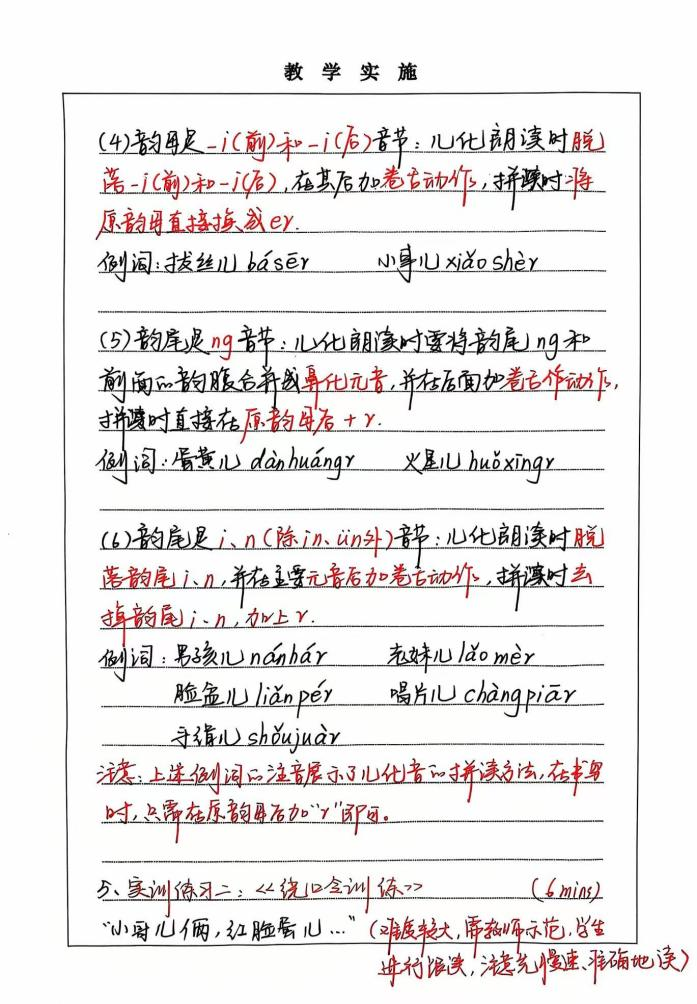 教 学 实 施
(4)韵母是-i(前)和-i(后)音节：儿化朗读时脱
落-i(前)和-i(后)，在其后加卷舌动作，拼读时将
原韵母直接换成er.
例词：拔丝儿 básēr 小事儿 xiǎoshèr
(5)韵尾是ng音节：儿化朗读时要将韵尾ng和
前面的韵腹合并成鼻化元音，并在后面加卷舌作动作，
拼读时直接在原韵母后+r.
例词：蛋黄儿 dànhuángr 火星儿 huǒxīngr
(6)韵尾是i、n(除in、ün外)音节：儿化朗读时脱
落韵尾i、n，并在主要元音后加卷舌动作，拼读时去
掉韵尾i、n，加上r.
例词：男孩儿 nánhár 老妹儿 lǎomèr
脸盆儿 liǎnpér 唱片儿 chàngpiār
手绢儿 shǒujuàr
注意：上述例词的注音展示了儿化音的拼读方法，在书写
时，只需在原韵母后加“r”即可。
5、实训练习二：<<绕口令训练>> (6mins)
“小哥儿俩，红脸蛋儿...” (难度较大，需教师示范，学生
进行跟读，注意先慢速、准确地读)